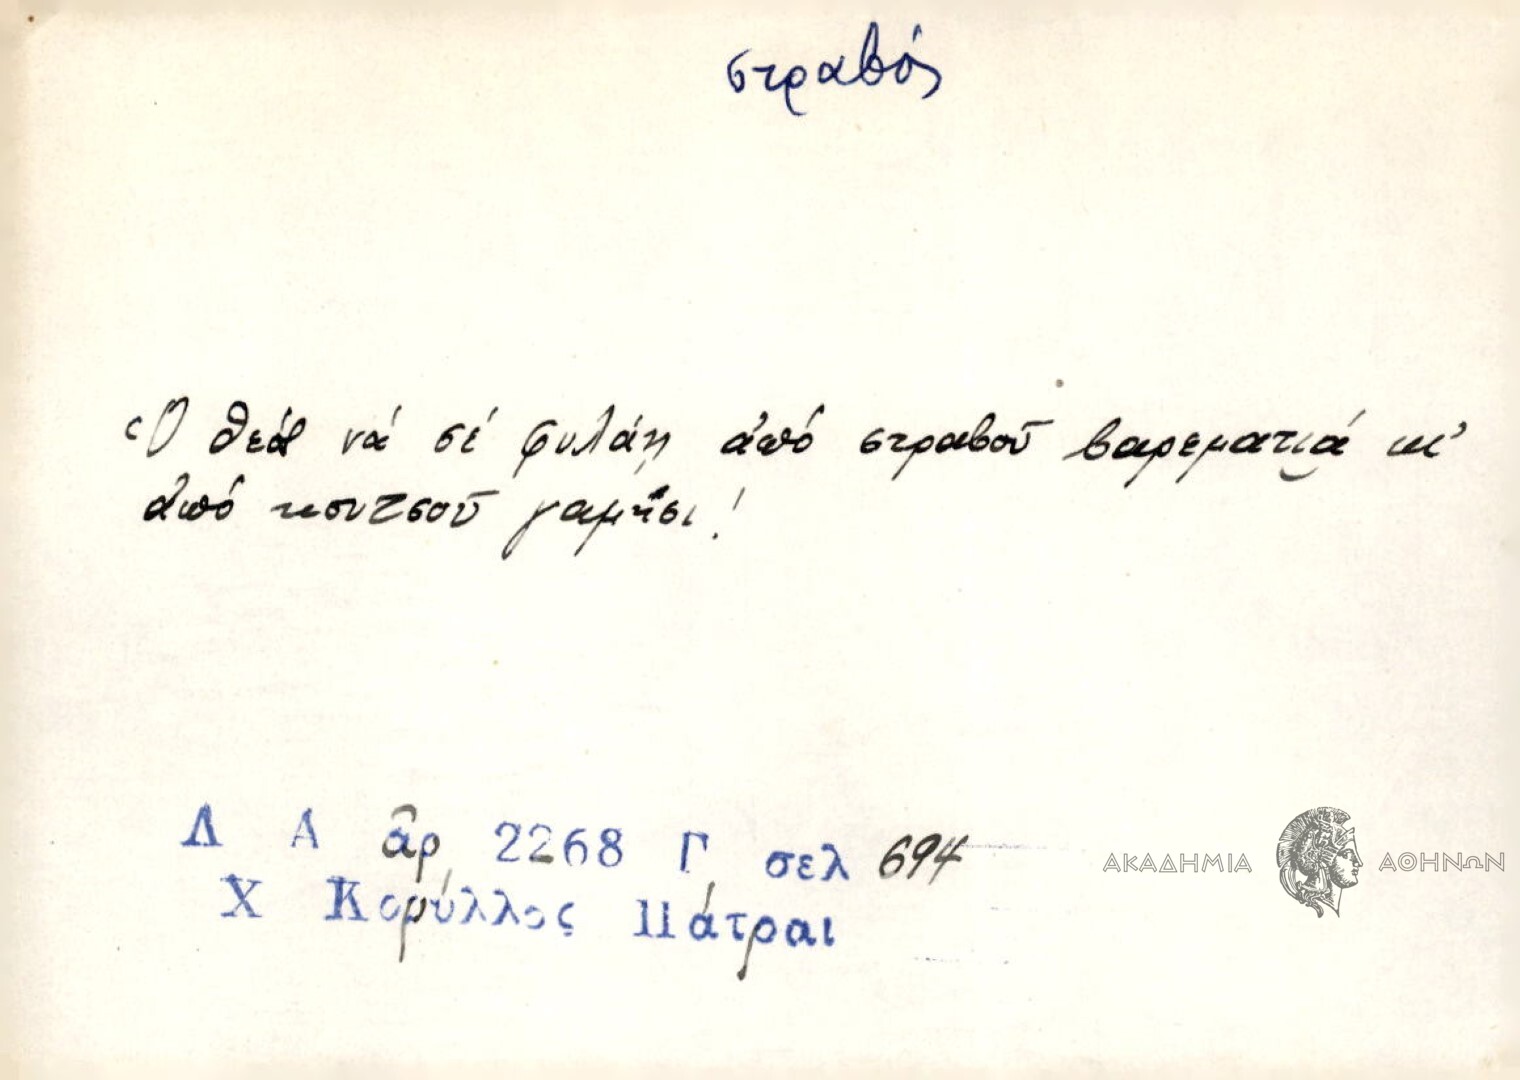 στραβός
Ὁ θεός νά σέ φυλάῃ ἀπό στραβοῦ βαρεματιά κι'
ἀπό κουτσοῦ γαμήσι!
Λ Α ἀρ 2268 Γ σελ 694
Χ Κορύλλος Πάτραι
ΑΚΑΔΗΜΙΑ ΑΘΗΝΩΝ